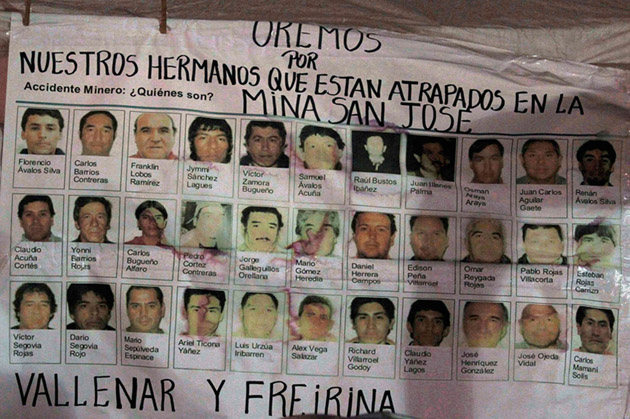 OREMOS
POR
NUESTROS HERMANOS QUE ESTAN ATRAPADOS EN LA
MINA SAN JOSE
Accidente Minero: ¿Quiénes son?
Florencio
Ávalos Silva
Carlos
Barrios
Contreras
Franklin
Lobos
Ramírez
Jymmi
Sánchez
Lagues
Víctor
Zamora
Bugueño
Samuel
Ávalos
Acuña
Raúl Bustos
Ibáñez
Juan Illanes
Palma
Osman
Araya
Araya
Juan Carlos
Aguilar
Gaete
Renán
Ávalos Silva
Claudio
Acuña
Cortés
Yonni
Barrios
Rojas
Carlos
Bugueño
Alfaro
Pedro
Cortez
Contreras
Jorge
Galleguillos
Orellana
Mario
Gómez
Heredia
Daniel
Herrera
Campos
Edison
Peña
Villarroel
Omar
Reygada
Rojas
Pablo Rojas
Villacorta
Esteban
Rojas
Carrizo
Víctor
Segovia
Rojas
Dario
Segovia
Rojo
Mario
Sepúlveda
Espinace
Ariel Ticona
Yáñez
Luis Urzúa
Iribarren
Alex Vega
Salazar
Richard
Villarroel
Godoy
Claudio
Yáñez
Lagos
José
Henríquez
González
José Ojeda
Vidal
Carlos
Mamani
Solis
VALLENAR Y FREIRINA